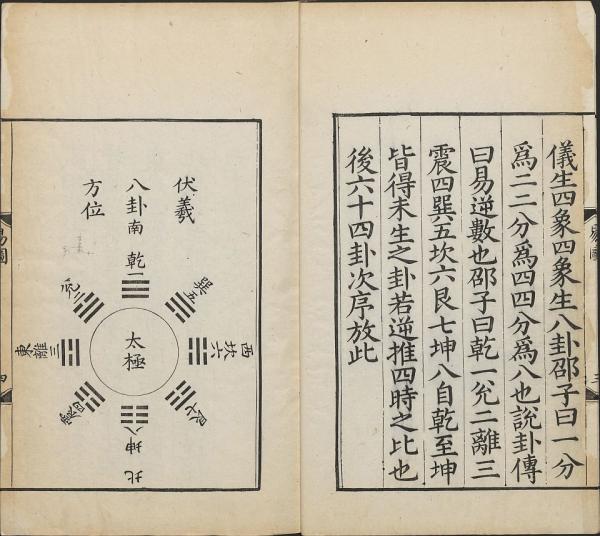 儀生四象四象生八卦邵子曰一分
爲二二分爲四四分爲八也說卦傳
曰易逆數也邵子曰乾一兊二離三
震四巽五坎六艮七坤八自乾至坤
皆得未生之卦若逆推四時之比也
後六十四卦次序放此
伏羲
八卦
方位
南
乾一
兊二
離三
東
震四
巽五
坎六
西
艮七
坤八
北
太極
易圖
四